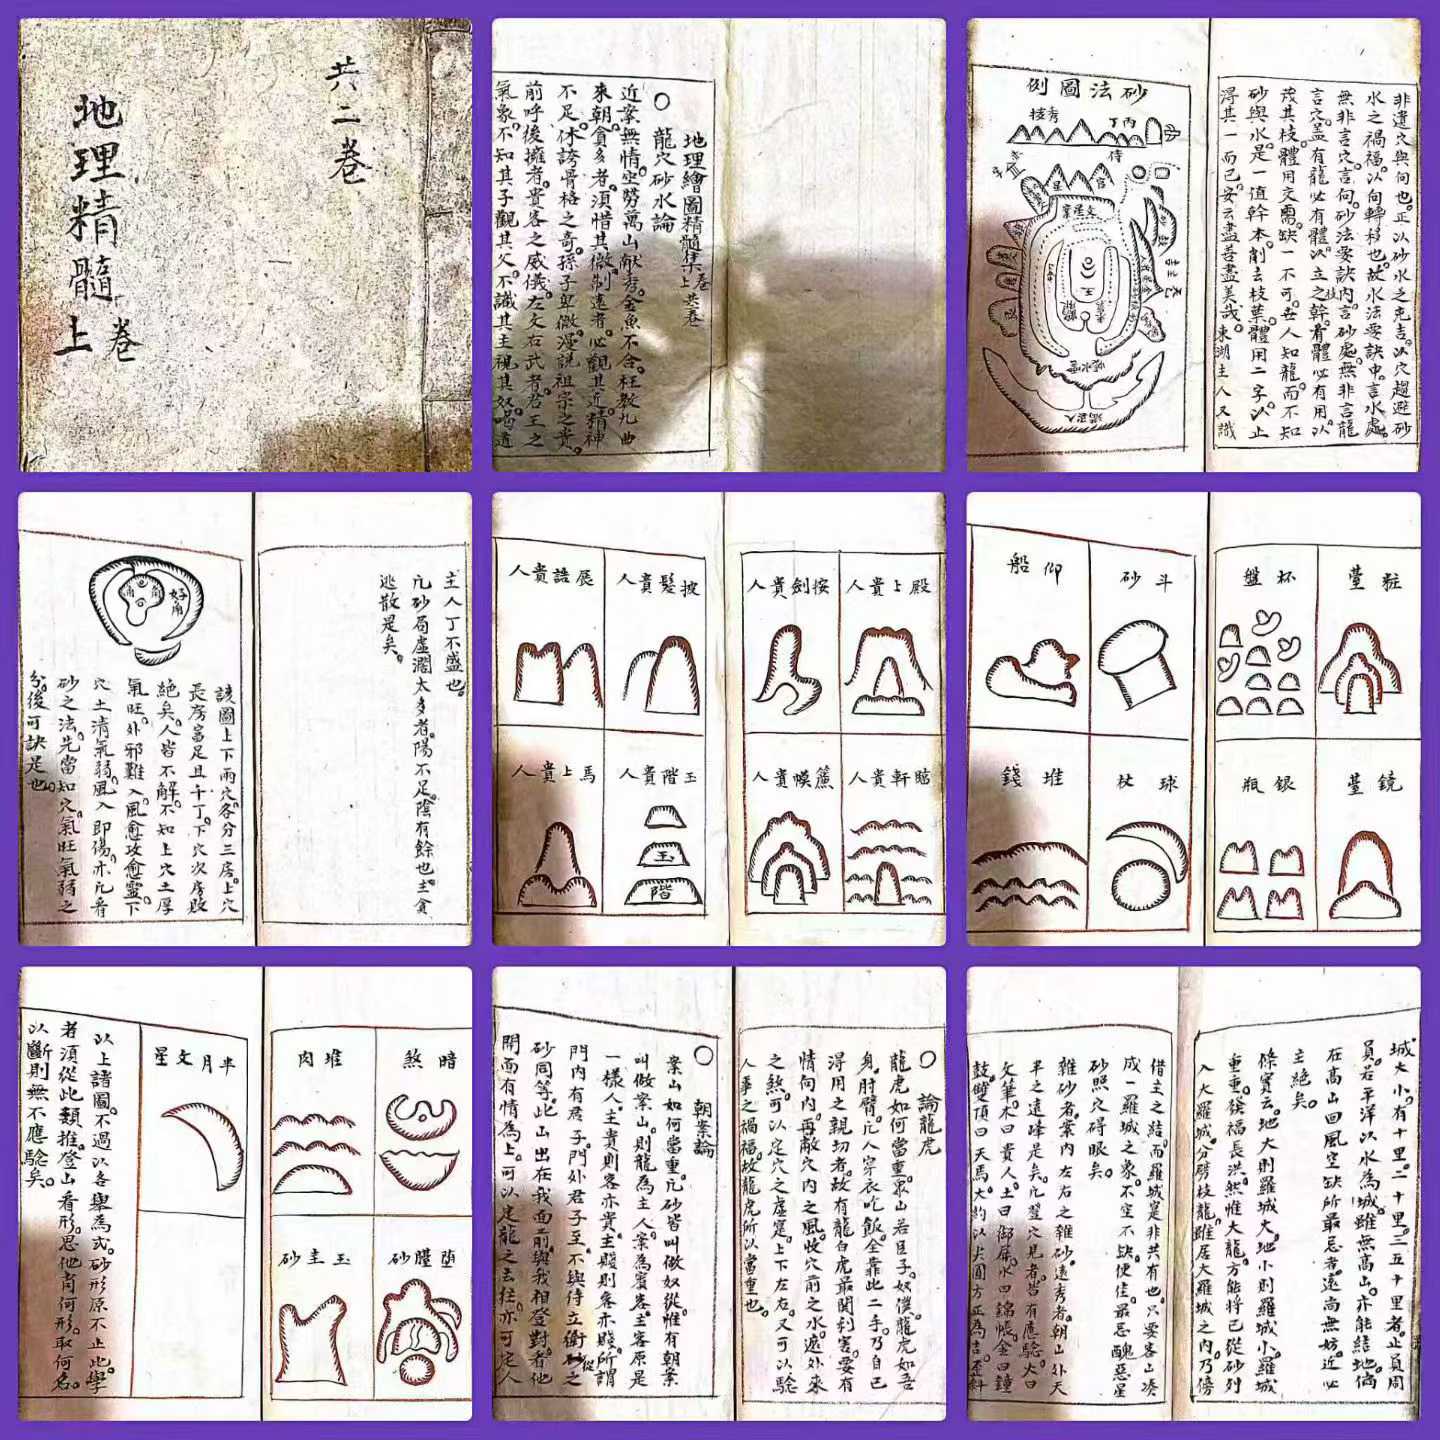 共二卷
地理精髓上卷
地理繪圖精髓集卷上共卷
○龍穴砂水論
近案無情空勞萬山献秀金魚不合枉教九曲
來朝貪多者須惜其微制遠者必觀其近精神
不足休誇骨格之奇孫子卑微漫説祖宗之貴
前呼後擁者貴客之威儀左文右武者君王之
氣象不知其子觀其父不識其主視其奴喝道
非遺穴與向也正以砂水乏克吉以穴趨避砂
水之禍福以向轉移也故水法要訣中言水處
無非言穴言向砂法要訣内言砂處無非言龍
言穴盖有龍必有體以立之幹有體必有用以
茂其枝體用交需缺一不可吾人知龍而不知
砂與水是一道幹本削去枝葉體用二字以止
得其一而已安云盡善盡美哉東湖主人又識
砂法圖例
秀枝
丙丁
侍
主人丁不盛也
凢砂局虚濶太多者陽不足陰有餘也主貪
逃散是矣
好角
角
角
該圖上下兩穴各分三房上穴
長房富足且千丁下穴次房敗
絶矣人皆不解不知上穴土厚
氣旺外邪難入風愈攻愈靈下
穴土清氣弱風入即傷亦凢看
砂之法先當知穴氣旺氣弱之
分後可訣是也
殿上貴人
按劍貴人
臨軒貴人
簾幙貴人
披髮貴人
展誥貴人
玉階貴人
玉
階
馬上貴人
粧臺
杯盤
鏡臺
銀瓶
斗砂
仰船
球杖
堆錢
暗煞
堆肉
堕胎砂
玉圭砂
半月文星
以上諸圖不過以各舉為式砂形原不止此學
者須從此類推登山看形思他肖何形取何名
以斷則無不應騐矣
○論龍虎
龍虎如何當重眾山若臣子奴僕龍虎如吾
身肘臂凢人穿衣吃飯全靠此二手乃自己
得用之親切者故有龍白虎最関利害要有
情向内再敵穴内之風收穴前之水遮外來
之煞可以定穴之虚寔上下左右又可以騐
人事之禍福故龍虎所以當重也
○朝案論
案山如何當重凢砂皆叫做奴從惟有朝案
叫做案山則龍為主人案為賓客主客原是
一樣人主貴則客亦貴主賤則客亦賤所謂
門内有君子門外君子至不與侍立衛從砂之
砂同等此山出在我面前與我相登對者他
開面有情為上可以定龍之去徃亦可定人
城大小有十里二十里三五十里者止負周
員若平洋以水為城雖無高山亦能結地倘
在高山四風空缺所最忌者遠尚無妨近必
主絶矣
條寔云地大則羅城大地小則羅城小羅城
重重發福長洪然惟大龍方能將己從砂列
入大羅城分劈枝龍雖居大羅城之内乃傍
借主之結而羅城寔非共有也只要客山凑
成一羅城之象不空不缺便佳最忌醜惡星
砂照穴碍眼矣
雜砂者案内左右之雜砂遠秀者朝山外天
半之遠峰是矣凢登穴見者皆有應騐火曰
文筆木曰貴人土曰御屏水曰錦帳金曰鐘
鼓雙頂曰天馬大約以尖圓方正為吉歪斜